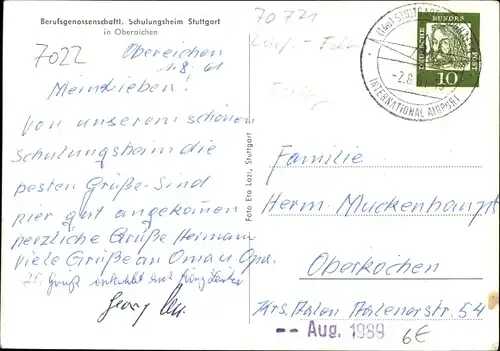 Berufsgenossenschaftl. Schulungsheim Stuttgart
in Oberaichen
7022
Obereichen
1.8.61
Meine Lieben!
Von unserem schönen
Schulungsheim die
besten Grüße. Sind
hier gut angekommen
herzliche Grüße Hermann
viele Grüße an Oma u. Opa.
Foto Eta Lazi, Stuttgart
70 771
(14a) STUTTGART
INTERNATIONAL AIRPORT
DEUTSCHE BUNDESPOST
10
Familie
Herm. Muckenhaupt
Oberkochen
Krs. Aalen Aalenerstr. 54
-- Aug. 1989
6€